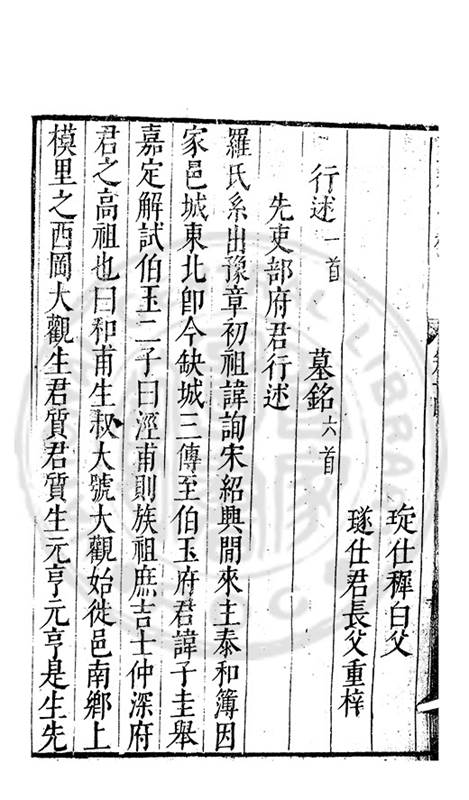 琁仕穉白父
璲仕君長父重梓
行述一首 墓銘六首
先吏部府君行述
羅氏系出豫章初祖諱詢宋紹興閒來主泰和簿因
家邑城東北卽今缺城三傳至伯玉府君諱子圭舉
嘉定解試伯玉二子曰涇甫則族祖庶吉士仲深府
君之高祖也曰和甫生叔大號大觀始徙邑南鄉上
模里之西岡大觀生君質君質生元亨元亨是生先